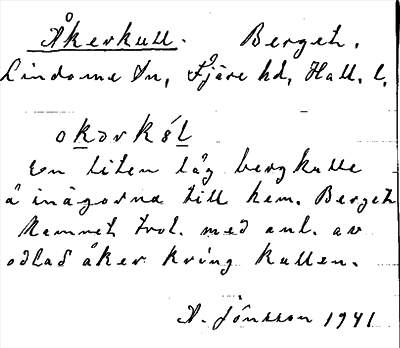 Åkerkull. Berget.
Lindome sn, Fjäre hd, Hall. l.
okərkúl
En liten låg bergkulle
å inägorna till hem. Berget
Namnet trol. med anl. av
odlad åker kring kullen.
A. Jönsson 1941